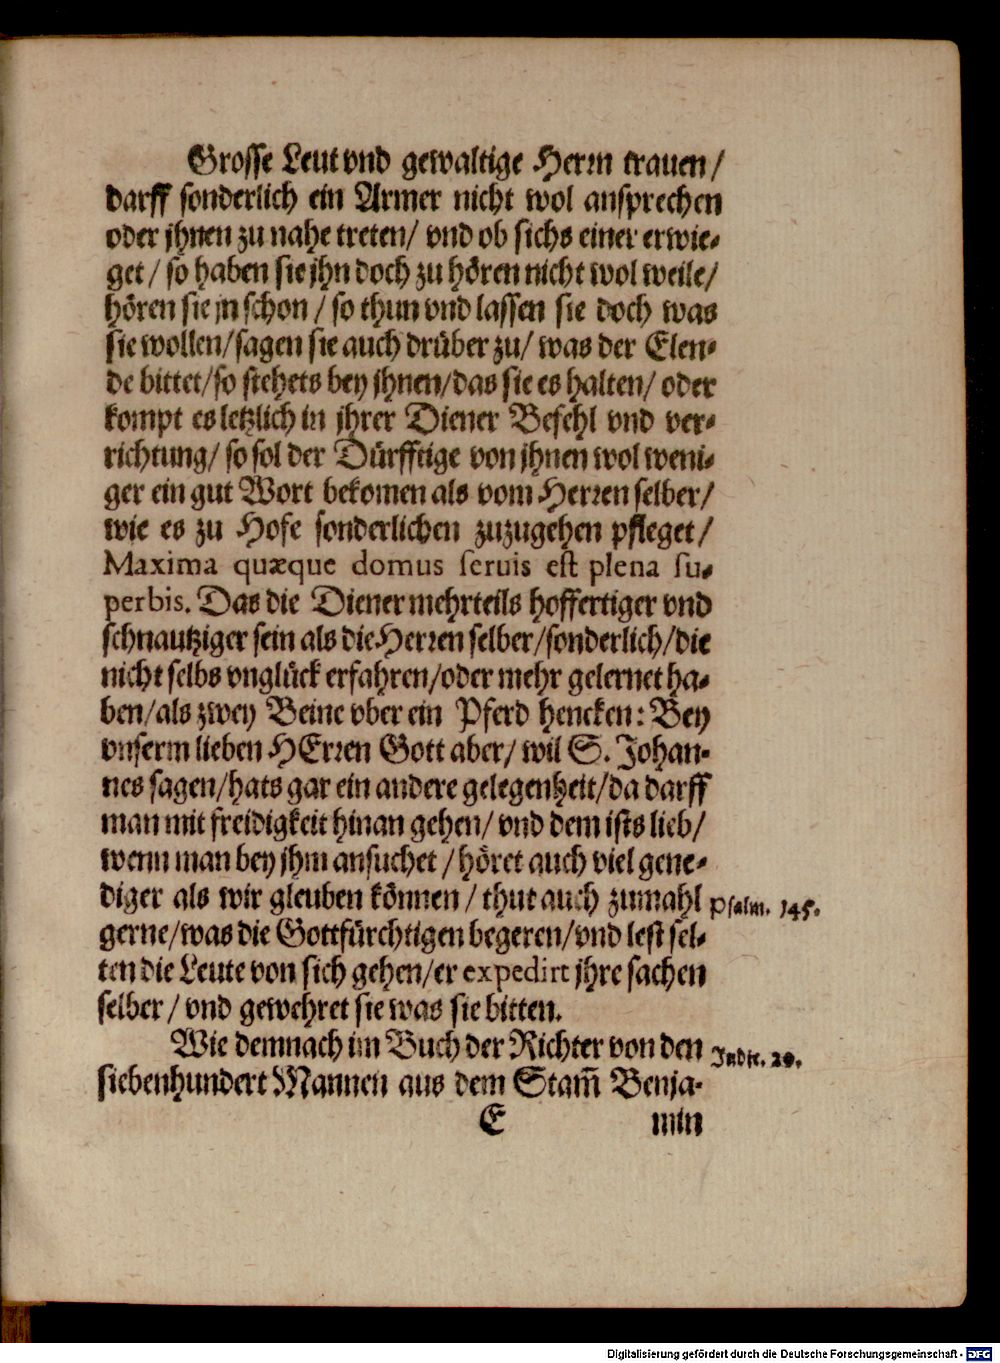 Grosse Leut vnd gewaltige Herrn trauen/
darff sonderlich ein Armer nicht wol ansprechen
oder jhnen zu nahe treten/ vnd ob sichs einer erwie-
get/ so haben sie jhn doch zu hören nicht wol weile/
hören sie jn schon/ so thun vnd lassen sie doch was
sie wollen/ sagen sie auch drüber zu/ was der Elen-
de bittet/ so stehets bey jhnen/ das sie es halten/ oder
kompt es letzlich in jhrer Diener Befehl vnd ver-
richtung/ so sol der Dürfftige von jhnen wol weni-
ger ein gut Wort bekomen als vom Herren selber/
wie es zu Hofe sonderlichen zuzugehen pfleget/
Maxima quæque domus seruis est plena su-
perbis. Das die Diener mehrteils hoffertiger vnd
schnautziger sein als die Herren selber/ sonderlich/ die
nicht selbs vnglück erfahren/ oder mehr gelernet ha-
ben/ als zwey Beine vber ein Pferd hencken: Bey
vnserm lieben HErren Gott aber/ wil S. Johan-
nes sagen/ hats gar ein andere gelegenheit/ da darff
man mit freidigkeit hinan gehen/ vnd dem ists lieb/
wenn man bey jhm ansuchet/ höret auch viel gene-
diger als wir gleuben können/ thut auch zumahl Psalm. 145.
gerne/ was die Gottfürchtigen begeren/ vnd lest sel-
ten die Leute von sich gehen/ er expedirt jhre sachen
selber/ vnd gewehret sie was sie bitten.
Wie demnach im Buch der Richter von den Judic. 20.
siebenhundert Mannen aus dem Stam̃ Benja-
E min
Digitalisierung gefördert durch die Deutsche Forschungsgemeinschaft - DFG